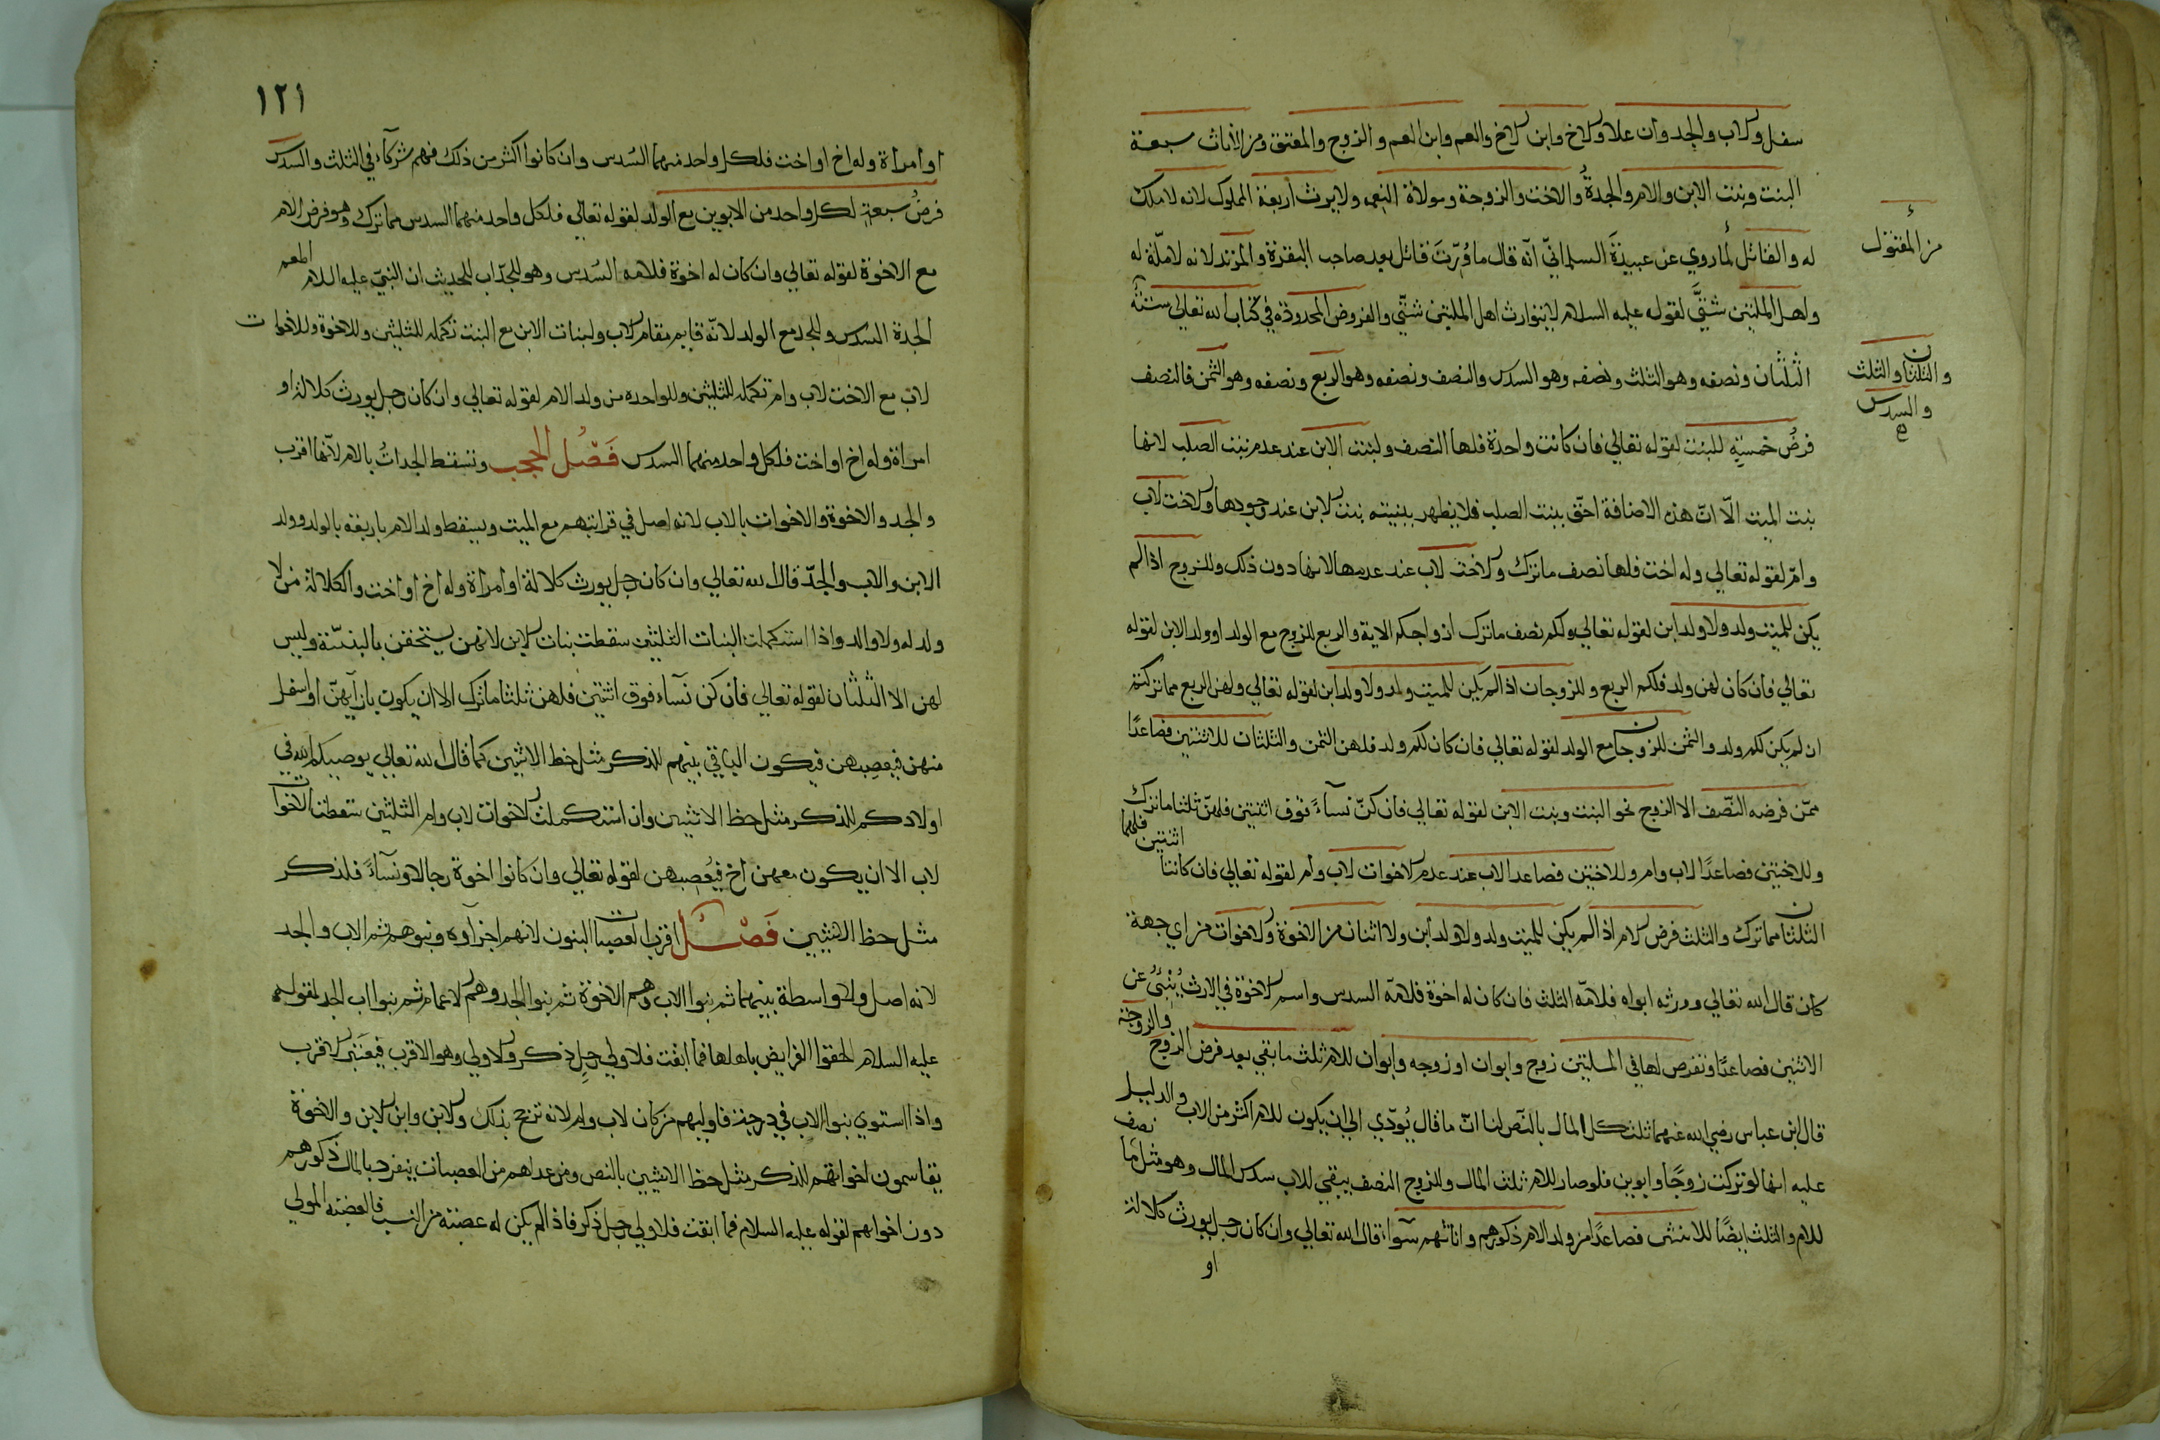 سفل والاب والجد وان علا والاخ وابن الاخ والعم وابن العم والزوج والمعتق ومن الأناث سبعة
البنت وبنت الابن والام والجدةُ والاخت والزوجة ومولاة النعمه ولا يرث أربعة المملوك لانه لا ملك
له والقاتل لما روي عن عبيدَةَ السلمانيّ انّه قال ما وُرّثَ قاتل بعد صاحب البقرة والمرتد لانه لا ملّة له
من المقتول
واهل الملتين شتيَّ لقوله عليه السلام لا يتوارث اهل الملتين شتّي والفروض المحدودة في كتاب الله تعالي ستّة
الثلثان ونصفه وهو الثلث ونصفه وهو السدس والنصف ونصفه وهو الربع ونصفه وهو الثمن فالنصف
والثلثان والثلث
والسدس
فرضُ خمسَةٍ للبنت لقوله تعالي فان كانت واحدة فلها النصف ولبنت الابن عند عدم بنت الصلب لانها
بنت الميت الّا انّ هذه الاضافة احقّ ببنت الصلب فلا يظهر بنتيته بنت الابن عند وجودها والاخت لاب
وامّ لقوله تعالي وله اخت فلها نصف ما ترك والاخت لاب عند عدمها لانها دون ذلك وللزوج اذا لم
يكن للميت ولد ولا ولد ابن لقوله تعالي ولكم نصف ما ترك ازواجكم الاية والربع للزوج مع الولد او ولد الابن لقوله
تعالي فان كان لهن ولد فلكم الربع وللزوجات اذا لم يكن للميت ولد ولا ولد ابن لقوله تعالي ولهن الربع مما تركتم
ان لم يكن لكم ولد والثمن للزوجات مع الولد لقوله تعالي فان كان لكم ولد فلهن الثمن والثلثان للاثنتين فصاعدًا
ممّن فرضه النّصف الا الزوج نحو البنت وبنت الابن لقوله تعالي فان كنّ نسآءً فوق اثنتين فلهنّ ثلثا ما ترك
وللاختين فصاعدًا لاب وام وللاختين فصاعدا لاب عند عدم الاخوات لاب وام لقوله تعالي فان كانتا اثنتين فلهما
الثلثان مما ترك والثلث فرض الام اذا لم يكن للميت ولد ولا ولد ابن ولا اثنان من الاخوة والاخوات من اي جهة
كان قال الله تعالي وورثه ابواه فلامّه الثلث فان كان له اخوة فلامّه السدس واسم الاخوة في الارث يُنْبئُ عن
الاثنين فصاعدًا ونفرض لها في المسئلتين زوج وابوان او زوجه وابوان للام ثلث ما بقي بعد فرض الزوج والزوجة
قال ابن عباس رضي الله عنهما ثلث كل المال بالنّص لنا انّ ما قال يُؤدّي الي ان يكون للام اكثر من الاب والدليل
عليه انها لو تركت زوجًا وابوين فلو صار للام ثلث المال وللزوج النصف يبقي للاب سدس المال وهو مثل نصف ما
للام والثلث ايضًا للاثنين فصاعدًا من ولد الام ذكورهم واناثهم سوآء قال الله تعالي وان كان رجل يورث كلالة
او
١٢١
او امراة وله اخ او اخت فلكل واحد منهما السّدس وان كانوا اكثر من ذلك فهم شركآء في الثلث والسدس
فرضُ سبعةٍ لكل واحد من الابوين مع الولد لقوله تعالي فلكل واحد منهما السدس مما ترك وهو فرض الام
مع الاخوة لقوله تعالي وان كان له اخوة فلامه السّدس وهو للجدّات للحديث ان النبيّ عليه السلام اطعم
الجدة السدس وللجد مع الولد لانّه قايم مقام الاب ولبنات الابن مع البنت تكمله للثلثين وللاخوة وللاخوات
لاب مع الاخت لاب وام تكمله للثلثين وللواحده من ولد الام لقوله تعالي وان كان رجل يورث كلالة او
امراة وله اخ او اخت فلكل واحد منهما السدس فَصْل الحجب وتسقط الجداتُ بالام لانّها اقرب
والجد والاخوة والاخوات بالاب لانه اصل في قرابتهم مع الميت ويسقط ولد الام باربعة بالولد وولد
الابن والاب والجدّ قال الله تعالي وان كان رجل يورث كلالة او امراة وله اخ او اخت والكلالة من لا
ولد له ولا والد واذا استكملت البنات الثلثين سقطت بنات الابن لانهن يستحقن بالبنتيّة وليس
لهن الا الثلثان لقوله تعالي فان كن نسآء فوق اثنتين فلهن ثلثا ما ترك الا ان يكون بازآيهنّ او اسفل
منهن فيعصبهن فيكون الباقي بينهم للذكر مثل حظ الانثيين كما قال الله تعالي يوصيكم الله في
اولادكم للذكر مثل حظ الانثيين وان استكملت الاخوات لاب وام الثلثين سقطت الاخوات
لاب الا ان يكون معهن اخ فيُعصبهن لقوله تعالي وان كانوا اخوة رجالا ونسآءً فللذكر
مثل حظ الانثيين فَصْل اقرب العصبات البنون لانهم اجزآوه وبنوهم ثم الاب والجد
لانه اصل ولا واسطة بينهما ثم بنوا الاب وهم الاخوة ثم بنوا الجد وهم الاعمام ثم بنوا اب الجد لقوله
عليه السلام الحقوا الفرايض باهلها فما ابقت فلاولي رجلٍ ذكر والاولي وهو الاقرب فيعتبر الاقرب
واذا استوي بنوا الاب في درجة فاوليهم من كان لاب وام لانه ترجح بذلك والابن وابن الابن والاخوة
يقاسمون اخواتهم للذكر مثل حظ الانثيين بالنص ومن عداهم من العصبات ينفرد بالمال ذكورهم
دون اخواتهم لقوله عليه السلام فما ابقت فلاولي رجل ذكر فاذا لم يكن له عصبة من النسب فالعصبة المولي